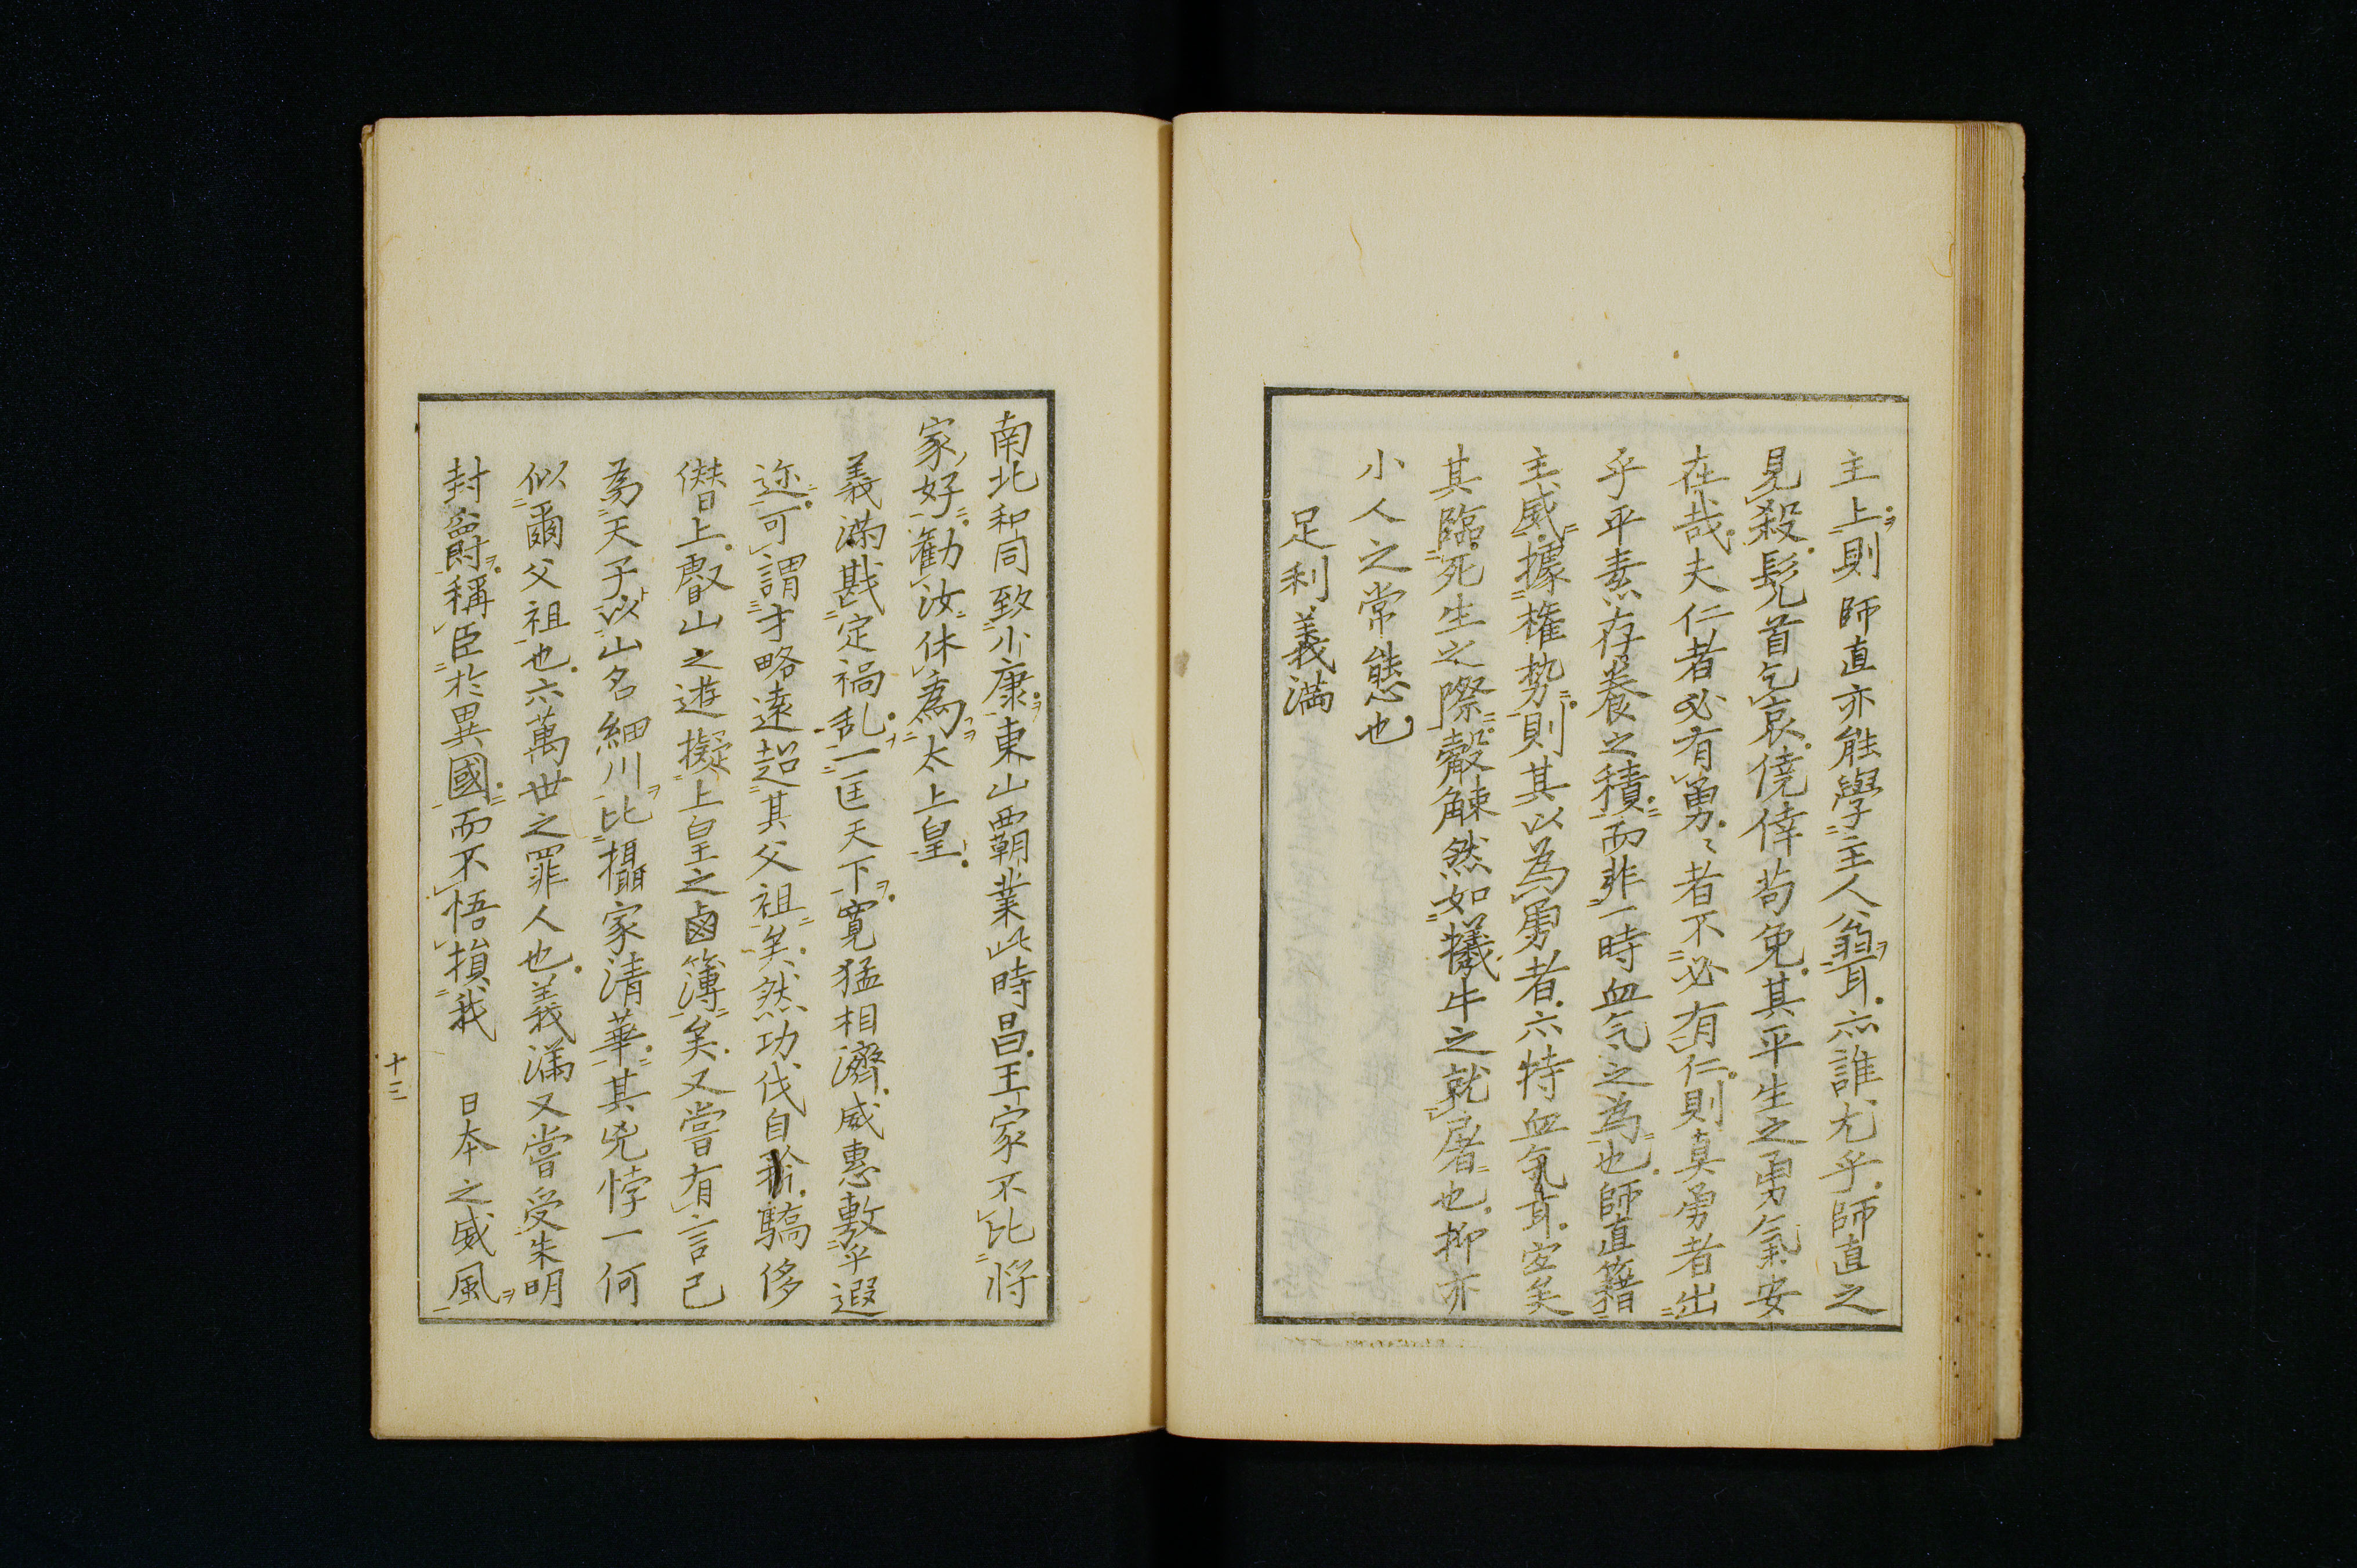 主上則師直亦能學主人翁耳亦誰尤乎師直之
見殺髡首乞哀僥倖苟免其平生之勇氣安
在哉夫仁者必有勇〻者不必有仁則真勇者出
乎平素存養之積而非一時血气之為也師直籍
主威據權勢則其以為勇者亦特血氣耳宜矣
其臨死生之際觳觫然如犧牛之就屠也抑亦
小人之常態也
足利義満
南北和同致小康東山覇業此時昌王家不比将
家好勸汝休為太上皇
義満戡定禍乱一匡天下寛猛相濟威惠敷乎遐
迩可謂才略遠超其父祖矣然功伐自矜驕侈
僭上叡山之遊擬上皇之鹵簿矣又嘗有言己
為天子以山名細川比攝家清華其兇悖一何
似爾父祖也亦萬世之罪人也義満又嘗受朱明
封爵稱臣於異國而不悟損我 日本之威風
十三